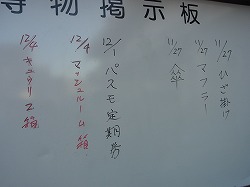 得物掲示板
11/27 ひざ掛け
11/27 マフラー
11/27 傘
12/1 パスモ定期券
12/4 マッシュルーム箱
12/4 キュウリ一箱